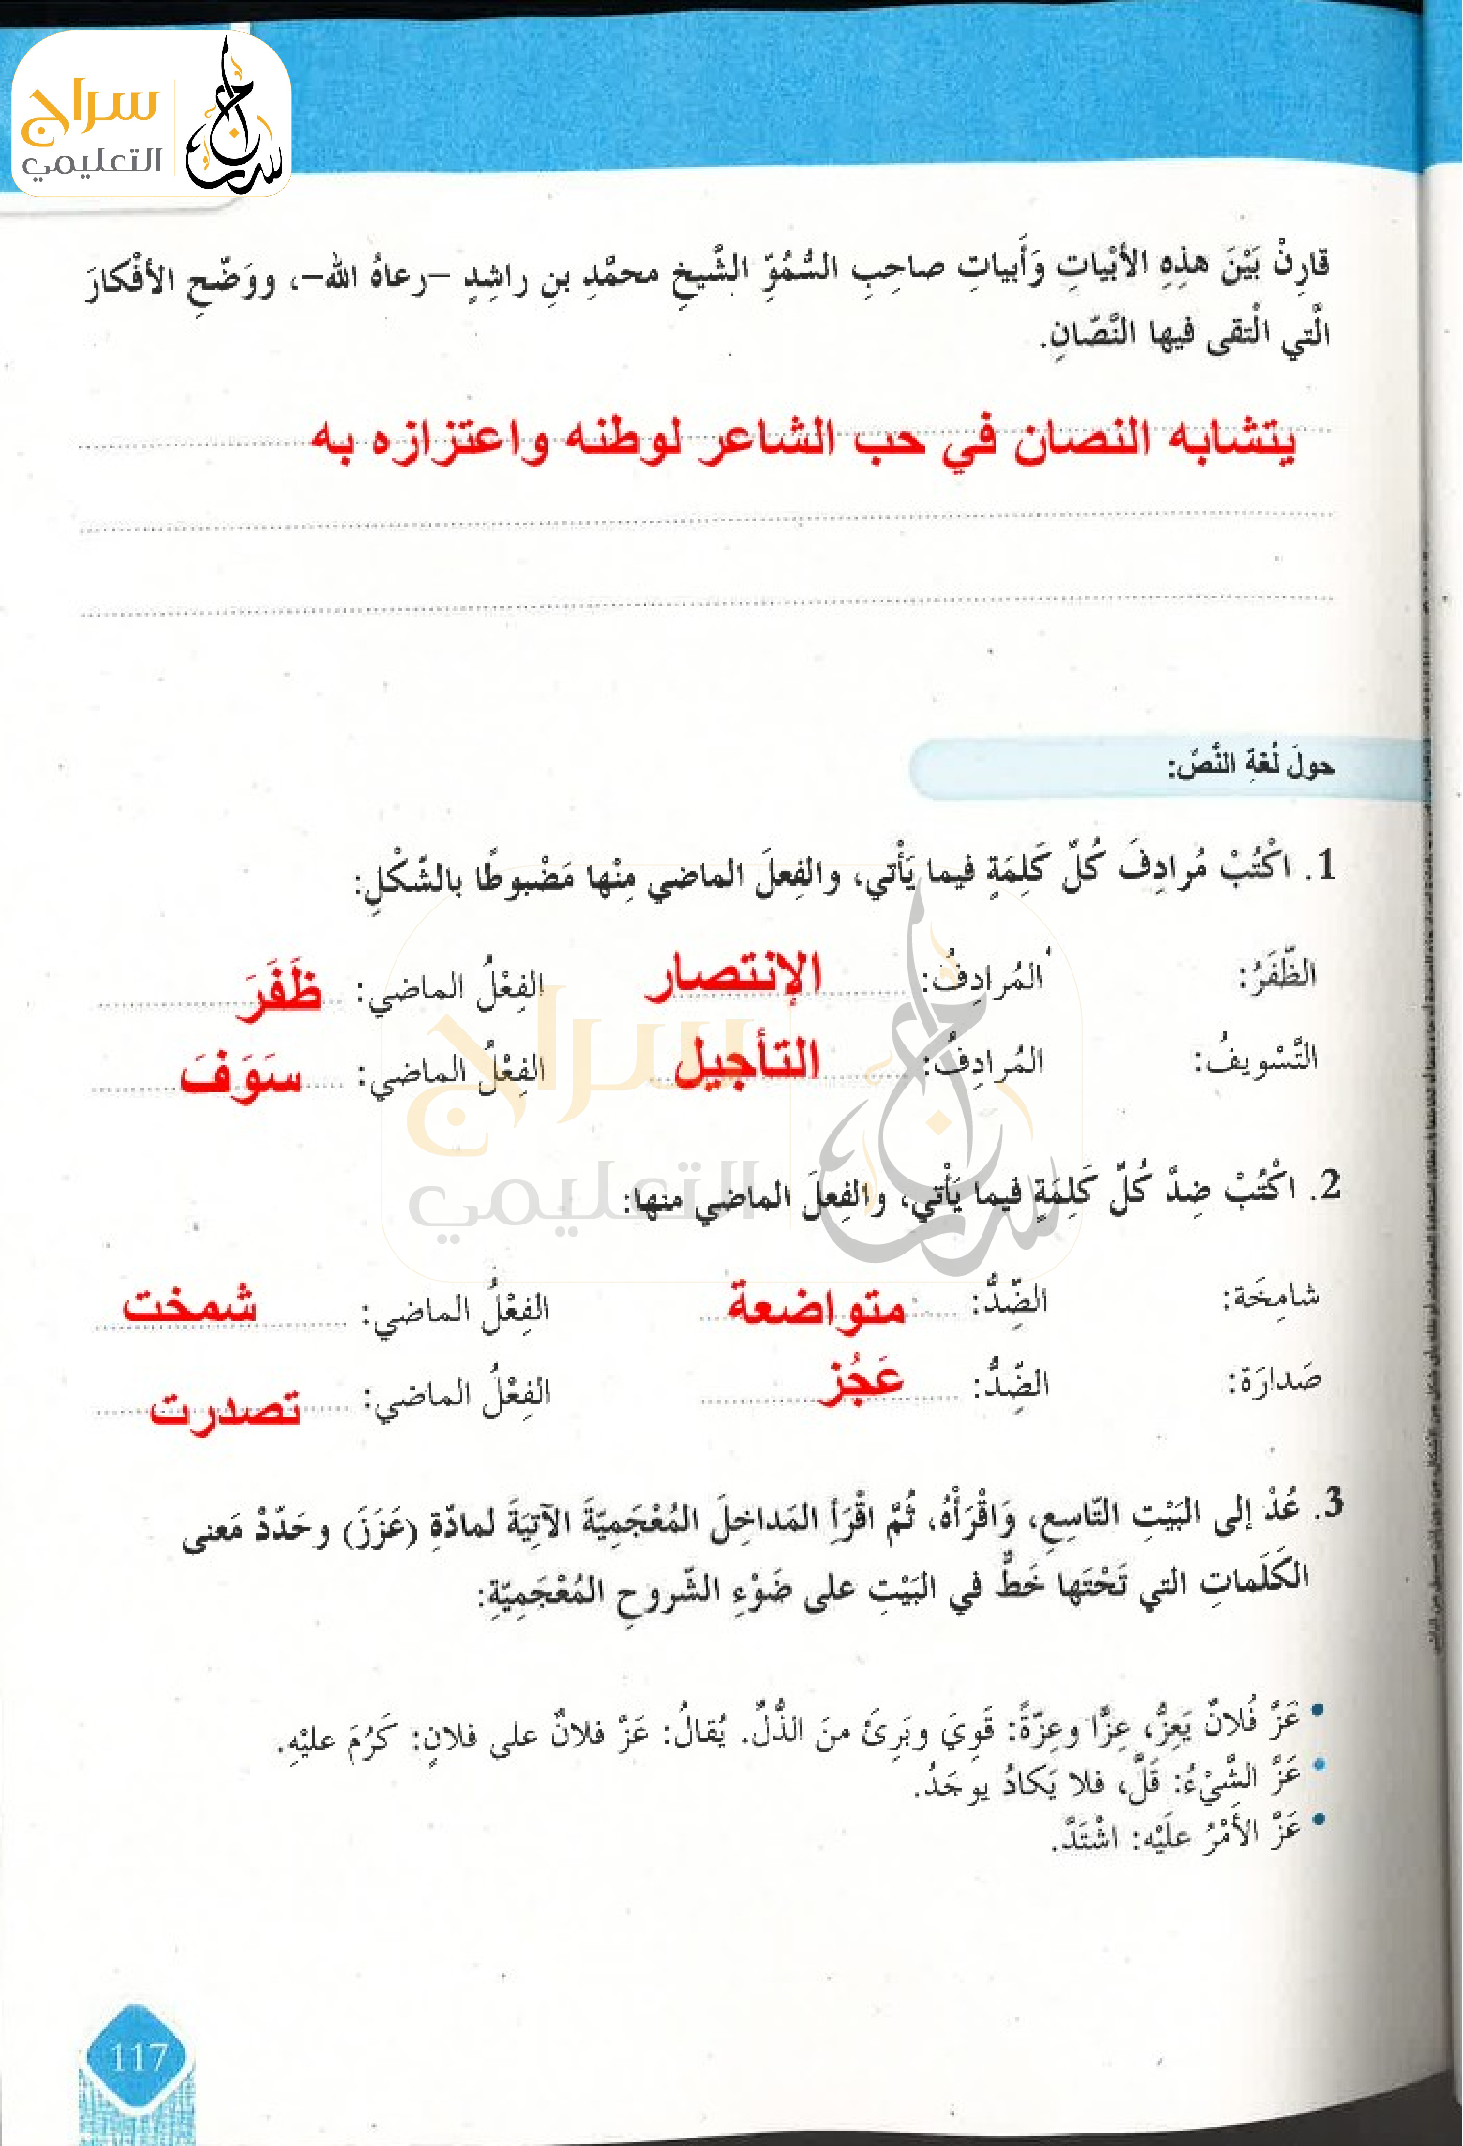 سراج
التعليمي
قارِنْ بَيْنَ هذِهِ الأبْياتِ وَأَبياتِ صاحِبِ السُّمُوِّ الشَّيخِ محمَّدِ بنِ راشِدٍ –رعاهُ الله–، ووَضّحِ الأفْكارَ
الَّتي الْتقى فيها النَّصّانِ.
يتشابه النصان في حب الشاعر لوطنه واعتزازه به
حولَ لُغةِ النَّصّ:
1. اكْتُبْ مُرادِفَ كُلِّ كَلِمَةٍ فيما يَأْتي، والفِعلَ الماضي مِنْها مَضْبوطًا بالشّكْلِ:
الظّفَرُ: المُرادِفُ: الإنتصار الفِعْلُ الماضي: ظَفَرَ
التَّسْويفُ: المُرادِفُ: التأجيل الفِعْلُ الماضي: سَوَفَ
2. اكْتُبْ ضِدَّ كُلِّ كَلِمَةٍ فيما يَأْتي، والفِعلَ الماضي منها:
شامِخَة: الضِّدُّ: متواضعة الفِعْلُ الماضي: شمخت
صَدارَة: الضِّدُّ: عَجُز الفِعْلُ الماضي: تصدرت
3. عُدْ إلى البَيْتِ التّاسِعِ، وَاقْرَأْهُ، ثُمَّ اقْرَأِ المَداخِلَ المُعْجَمِيّةَ الآتِيَةَ لمادّةِ (عَزَزَ) وحَدّدْ مَعنى
الكَلَماتِ التي تَحْتَها خَطٌّ في البَيْتِ على ضَوْءِ الشّروحِ المُعْجَمِيّةِ:
• عَزَّ فُلانٌ يَعِزُّ، عِزًّا وعِزّةً: قَوِيَ وبَرِئَ منَ الذُّلّ. يُقالُ: عَزّ فلانٌ على فلانٍ: كَرُمَ عليْهِ.
• عَزَّ الشَّيْءُ: قَلَّ، فلا يَكادُ يوجَدُ.
• عَزَّ الأَمْرُ علَيْه: اشْتَدَّ.
117